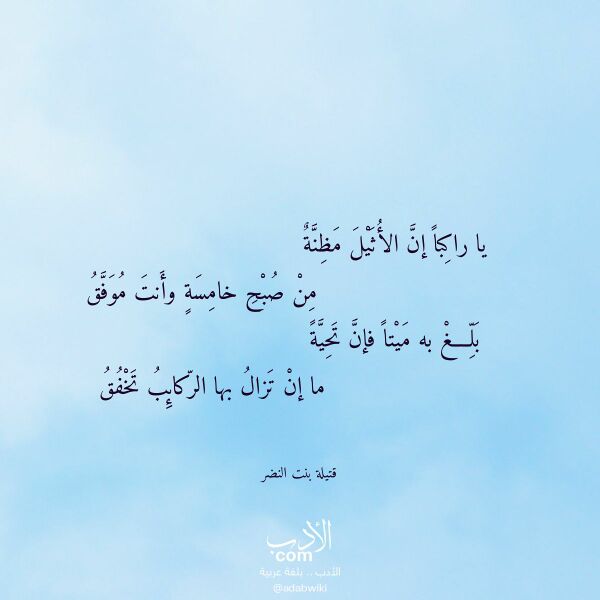 يا راكِباً إنَّ الأُثَيْلَ مَظِنَّةٌ
مِنْ صُبْحِ خامِسَةٍ وأَنتَ مُوَفَّقُ
بَلِّــغْ به مَيْتاً فإنَّ تَحِيَّةً
ما إنْ تَزالُ بها الرّكايِبُ تَخْفُقُ
قتيلة بنت النضر
الأدب
com
الأدب .. بلغة عربية
@adabwiki